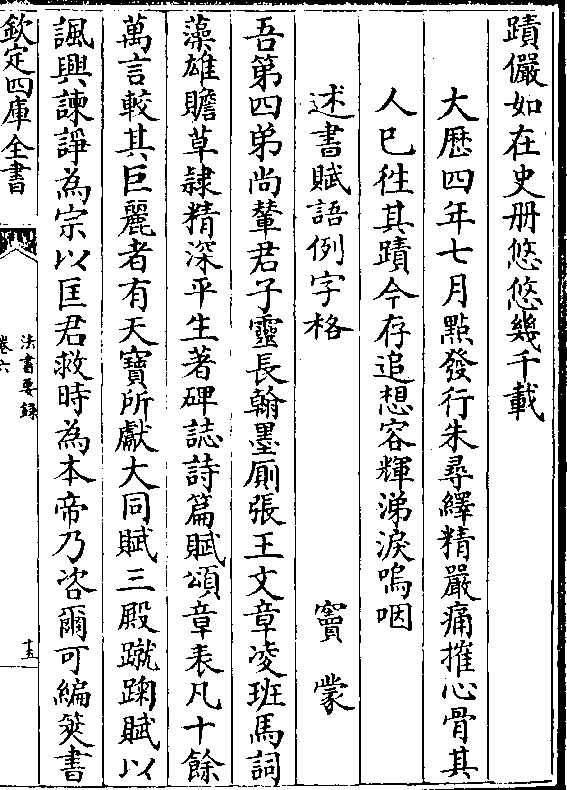 蹟儼如在史册悠悠幾千載
大厯四年七月點發行朱尋繹精嚴痛摧心骨其
人已徃其蹟今存追想容輝涕淚嗚咽
述書賦語例字格　竇蒙
吾第四弟尚輦君子靈長翰墨厠張王文章凌班馬詞
藻雄贍草隷精深平生著碑誌詩篇賦頌章表凡十餘
萬言較其巨麗者有天寶所獻大同賦三殿蹴踘賦以
諷興諫諍為宗以匡君救時為本帝乃咨爾可編筴書
欽定四庫全書
法書要録
卷六
十五